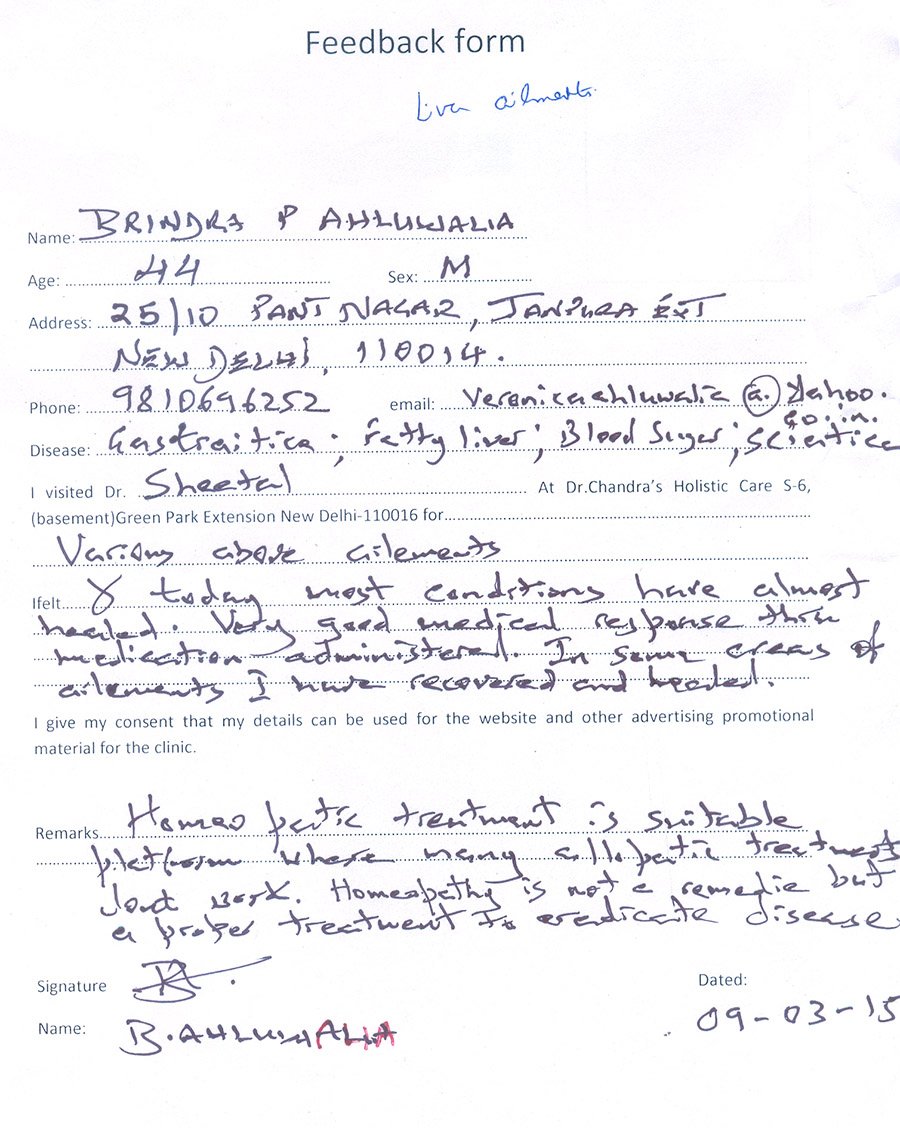 Feedback form
Liver ailments
Name: BRINDRA P AHLUWALIA
Age: 44 Sex: M
Address: 25/10 PANT NAGAR, JANPURA EXT
NEW DELHI, 110014.
Phone: 9810696252 email: Veronicaahluwalia @. Yahoo.
co.in.
Disease: Gastraitica; Fatty liver; Blood Suger; Scientica
I visited Dr. Sheetal At Dr.Chandra's Holistic Care S-6,
(basement)Green Park Extension New Delhi-110016 for
Various above ailements
Ifelt today most conditions have almost
healed. Very good medical response this
medication administered. In some areas of
ailements I have recovered and healed.
I give my consent that my details can be used for the website and other advertising promotional
material for the clinic.
Remarks Homeo patic treatment is suitable
platform where many allopatic treatments
dont work. Homeopathy is not a remedie but
a proper treatment to eradicate disease
Signature
Dated:
Name: B. AHLUWALIA 09-03-15